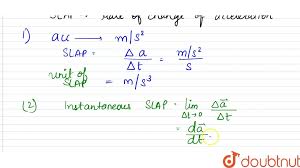 SLAP = Rate of change of acceleration
1) acc → m/s²
SLAP = Δa / Δt = m/s² / s
unit of SLAP = m/s³
(2) Instantaneous SLAP = lim Δt→0 Δa⃗ / Δt
= da⃗ / dt
doubtnut